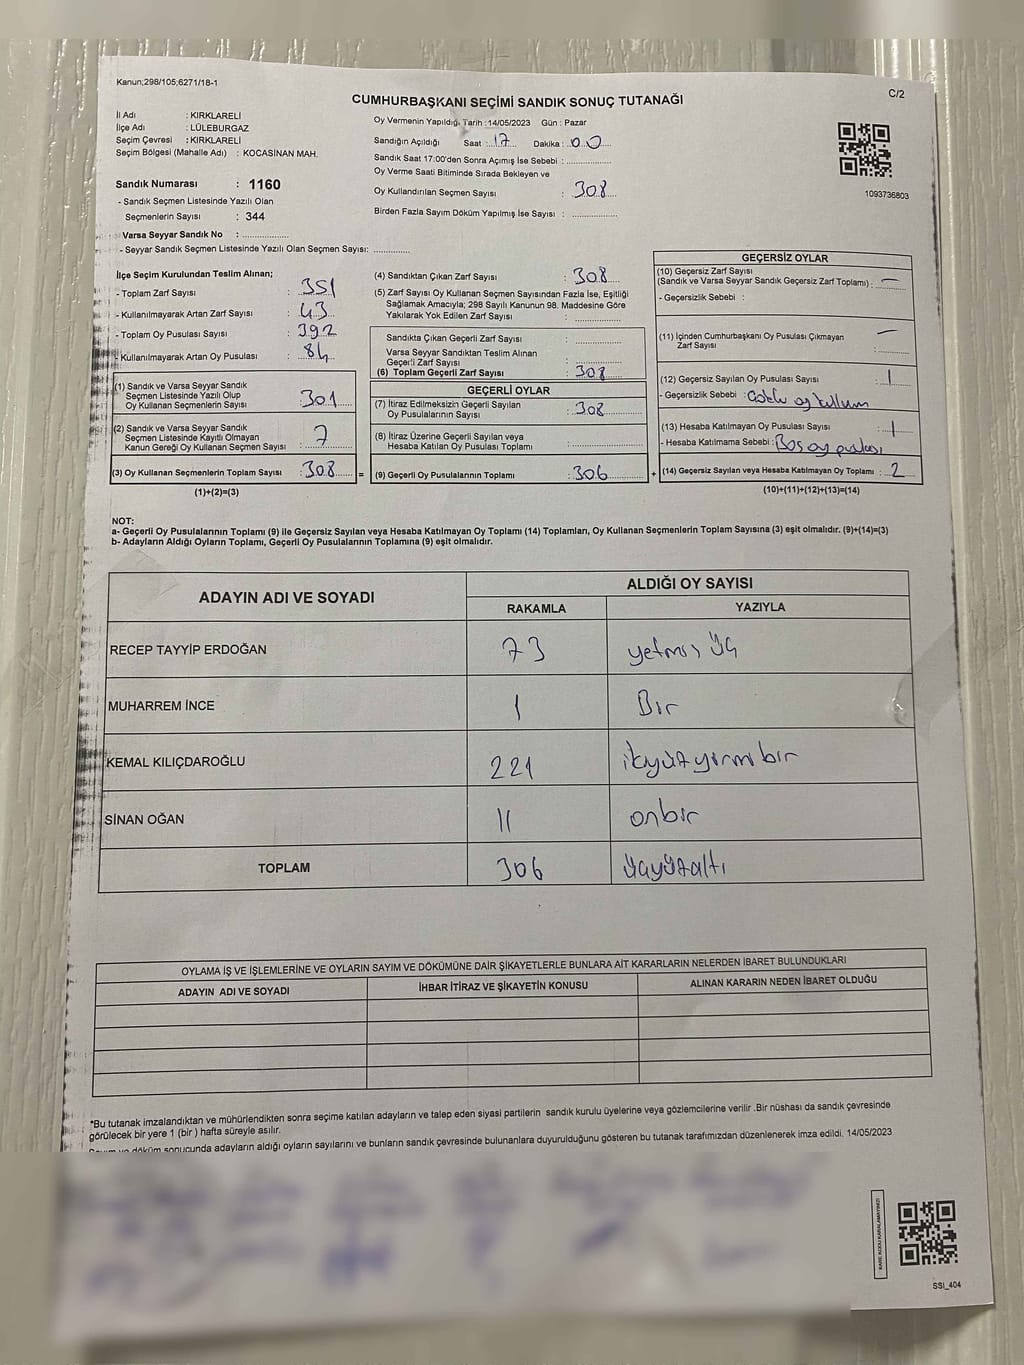 Kanun;298/105;6271/18-1
CUMHURBAŞKANI SEÇİMİ SANDIK SONUÇ TUTANAĞI
C/2
İl Adı : KIRKLARELİ
İlçe Adı : LÜLEBURGAZ
Seçim Çevresi : KIRKLARELİ
Seçim Bölgesi (Mahalle Adı) : KOCASİNAN MAH.
Sandık Numarası : 1160
- Sandık Seçmen Listesinde Yazılı Olan
Seçmenlerin Sayısı : 344
Varsa Seyyar Sandık No : ....................
- Seyyar Sandık Seçmen Listesinde Yazılı Olan Seçmen Sayısı: ..............
Oy Vermenin Yapıldığı Tarih :14/05/2023 Gün : Pazar
Sandığın Açıldığı Saat : 17 Dakika : 00
Sandık Saat 17:00'den Sonra Açımış İse Sebebi : ..................
Oy Verme Saati Bitiminde Sırada Bekleyen ve
Oy Kullandırılan Seçmen Sayısı : 308
Birden Fazla Sayım Döküm Yapılmış İse Sayısı : ..................
1093736803
İlçe Seçim Kurulundan Teslim Alınan;
- Toplam Zarf Sayısı : 351
- Kullanılmayarak Artan Zarf Sayısı : 43
- Toplam Oy Pusulası Sayısı : 392
- Kullanılmayarak Artan Oy Pusulası : 84
(1) Sandık ve Varsa Seyyar Sandık
Seçmen Listesinde Yazılı Olup
Oy Kullanan Seçmenlerin Sayısı : 301
(2) Sandık ve Varsa Seyyar Sandık
Seçmen Listesinde Kayıtlı Olmayan
Kanun Gereği Oy Kullanan Seçmen Sayısı : 7
(3) Oy Kullanan Seçmenlerin Toplam Sayısı : 308 =
(1)+(2)=(3)
(4) Sandıktan Çıkan Zarf Sayısı : 308
(5) Zarf Sayısı Oy Kullanan Seçmen Sayısından Fazla İse, Eşitliği
Sağlamak Amacıyla; 298 Sayılı Kanunun 98. Maddesine Göre
Yakılarak Yok Edilen Zarf Sayısı : ..................
Sandıkta Çıkan Geçerli Zarf Sayısı : ..................
Varsa Seyyar Sandıktan Teslim Alınan
Geçerli Zarf Sayısı : ..................
(6) Toplam Geçerli Zarf Sayısı : 308
GEÇERLİ OYLAR
(7) İtiraz Edilmeksizin Geçerli Sayılan
Oy Pusulalarının Sayısı : 308
(8) İtiraz Üzerine Geçerli Sayılan veya
Hesaba Katılan Oy Pusulası Toplamı : ..................
(9) Geçerli Oy Pusulalarının Toplamı : 306 +
GEÇERSİZ OYLAR
(10) Geçersiz Zarf Sayısı
(Sandık ve Varsa Seyyar Sandık Geçersiz Zarf Toplamı) : —
- Geçersizlik Sebebi :
(11) İçinden Cumhurbaşkanı Oy Pusulası Çıkmayan
Zarf Sayısı : —
(12) Geçersiz Sayılan Oy Pusulası Sayısı : 1
- Geçersizlik Sebebi : Çoklu oy kullum
(13) Hesaba Katılmayan Oy Pusulası Sayısı : 1
- Hesaba Katılmama Sebebi : Boş oy pusulası
(14) Geçersiz Sayılan veya Hesaba Katılmayan Oy Toplamı : 2
(10)+(11)+(12)+(13)=(14)
NOT:
a- Geçerli Oy Pusulalarının Toplamı (9) ile Geçersiz Sayılan veya Hesaba Katılmayan Oy Toplamı (14) Toplamları, Oy Kullanan Seçmenlerin Toplam Sayısına (3) eşit olmalıdır. (9)+(14)=(3)
b- Adayların Aldığı Oyların Toplamı, Geçerli Oy Pusulalarının Toplamına (9) eşit olmalıdır.
ADAYIN ADI VE SOYADI
ALDIĞI OY SAYISI
RAKAMLA YAZIYLA
RECEP TAYYİP ERDOĞAN 73 yetmiş üç
MUHARREM İNCE 1 Bir
KEMAL KILIÇDAROĞLU 221 ikiyüzyirmibir
SİNAN OĞAN 11 onbir
TOPLAM 306 üçyüzaltı
OYLAMA İŞ VE İŞLEMLERİNE VE OYLARIN SAYIM VE DÖKÜMÜNE DAİR ŞİKAYETLERLE BUNLARA AİT KARARLARIN NELERDEN İBARET BULUNDUKLARI
ADAYIN ADI VE SOYADI İHBAR İTİRAZ VE ŞİKAYETİN KONUSU ALINAN KARARIN NEDEN İBARET OLDUĞU
*Bu tutanak imzalandıktan ve mühürlendikten sonra seçime katılan adayların ve talep eden siyasi partilerin sandık kurulu üyelerine veya gözlemcilerine verilir .Bir nüshası da sandık çevresinde
görülecek bir yere 1 (bir ) hafta süreyle asılır.
Sayım ve döküm sonucunda adayların aldığı oyların sayılarını ve bunların sandık çevresinde bulunanlara duyurulduğunu gösteren bu tutanak tarafımızdan düzenlenerek imza edildi. 14/05/2023
KARE KODU KARALAMAYINIZ!
SSI_404